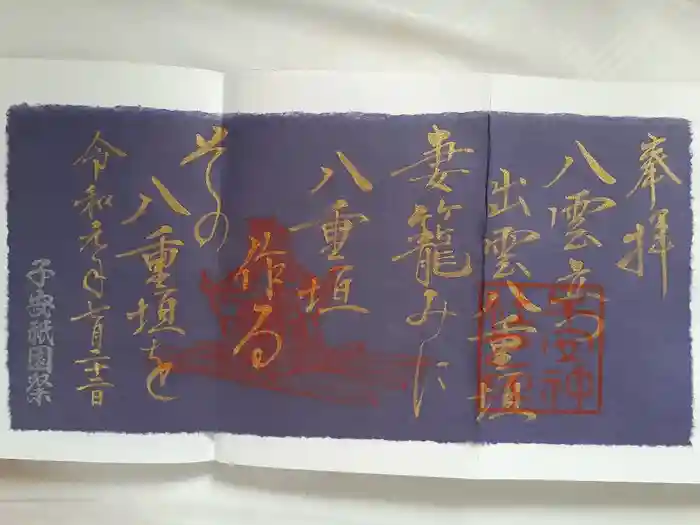 奉拝
八雲立つ
出雲八重垣
妻籠みに
八重垣
作る
その
八重垣を
令和元年七月二十二日
子安祇園祭